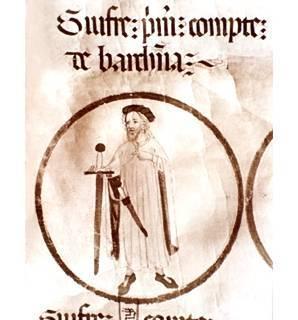 Guifre: p̄m̄: compte:
de barch̄na:~
Guifre: compte: